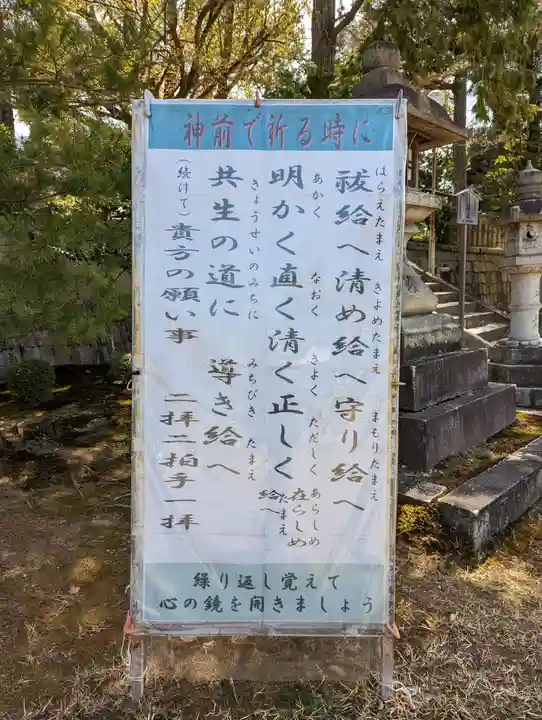 神前で祈る時に
はらえたまえ きよめたまえ まもりたまえ
祓給へ清め給へ守り給へ
あかく なおく きよく ただしく あらしめ
明かく直く清く正しく在らしめ
たまえ
給へ
きょうせいのみちに みちびき たまえ
共生の道に 導き給へ
(続けて)貴方の願い事 二拝二拍手一拝
繰り返し覚えて
心の鏡を開きましょう